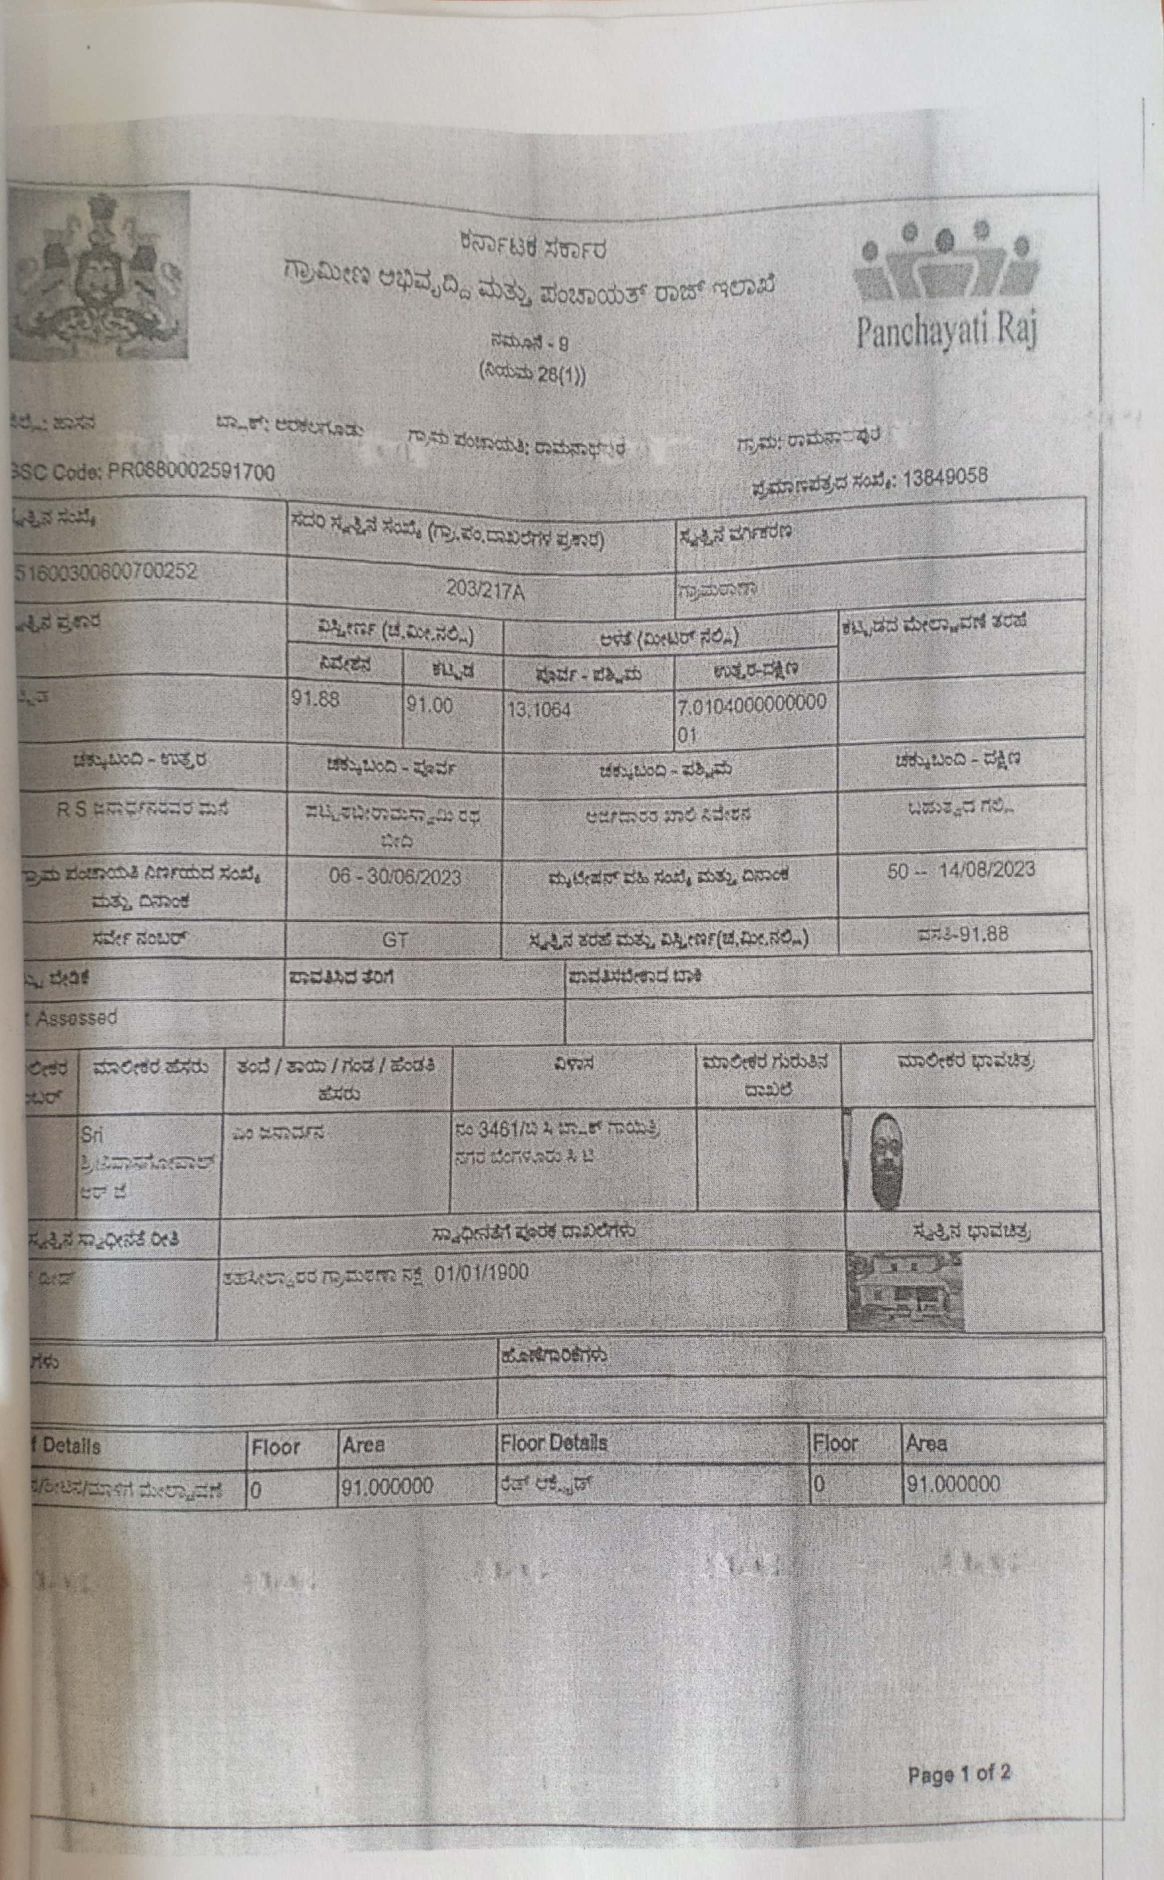 ಕರ್ನಾಟಕ ಸರ್ಕಾರ
ಗ್ರಾಮೀಣ ಅಭಿವೃದ್ಧಿ ಮತ್ತು ಪಂಚಾಯತ್ ರಾಜ್ ಇಲಾಖೆ
Panchayati Raj
ನಮೂನೆ - 9
(ನಿಯಮ 28(1))
ಹಾಸನ ಬ್ಲಾಕ್: ಅರಕಲಗೂಡು ಗ್ರಾಮ ಪಂಚಾಯತಿ: ರಾಮನಾಥಪುರ ಗ್ರಾಮ: ರಾಮನಾಥಪುರ
SSC Code: PR0880002591700 ಪ್ರಮಾಣಪತ್ರದ ಸಂಖ್ಯೆ: 13849058
ಸ್ವತ್ತಿನ ಸಂಖ್ಯೆ ಸದರಿ ಸ್ವತ್ತಿನ ಸಂಖ್ಯೆ (ಗ್ರಾ.ಪಂ.ದಾಖಲೆಗಳ ಪ್ರಕಾರ) ಸ್ವತ್ತಿನ ವರ್ಗೀಕರಣ
51600300600700252 203/217A ಗ್ರಾಮಠಾಣಾ
ಸ್ವತ್ತಿನ ಪ್ರಕಾರ ವಿಸ್ತೀರ್ಣ (ಚ.ಮೀ.ನಲ್ಲಿ) ಅಳತೆ (ಮೀಟರ್ ನಲ್ಲಿ) ಕಟ್ಟಡದ ಮೇಲ್ಛಾವಣಿ ತರಹೆ
ನಿವೇಶನ ಕಟ್ಟಡ ಪೂರ್ವ - ಪಶ್ಚಿಮ ಉತ್ತರ-ದಕ್ಷಿಣ
91.88 91.00 13.1064 7.0104000000000
01
ಚಕ್ಕುಬಂದಿ - ಉತ್ತರ ಚಕ್ಕುಬಂದಿ - ಪೂರ್ವ ಚಕ್ಕುಬಂದಿ - ಪಶ್ಚಿಮ ಚಕ್ಕುಬಂದಿ - ದಕ್ಷಿಣ
R S ಜನಾರ್ಧನರವರ ಮನೆ ಪಟ್ಟಾಭಿರಾಮಸ್ವಾಮಿ ರಥ ಅರ್ಜಿದಾರರ ಖಾಲಿ ನಿವೇಶನ ಗಲ್ಲಿ
ಬೀದಿ
ಗ್ರಾಮ ಪಂಚಾಯತಿ ನಿರ್ಣಯದ ಸಂಖ್ಯೆ 06 - 30/06/2023 ಮ್ಯುಟೇಷನ್ ವಹಿ ಸಂಖ್ಯೆ ಮತ್ತು ದಿನಾಂಕ 50 -- 14/08/2023
ಮತ್ತು ದಿನಾಂಕ
ಸರ್ವೇ ನಂಬರ್ GT ಸ್ವತ್ತಿನ ತರಹೆ ಮತ್ತು ವಿಸ್ತೀರ್ಣ(ಚ.ಮೀ.ನಲ್ಲಿ) ವಸತಿ-91.88
ಬೇಡಿಕೆ ಪಾವತಿಸಿದ ತೆರಿಗೆ ಪಾವತಿಸಬೇಕಾದ ಬಾಕಿ
Assessed
ಮಾಲೀಕರ ಹೆಸರು ತಂದೆ / ತಾಯಿ / ಗಂಡ / ಹೆಂಡತಿ ವಿಳಾಸ ಮಾಲೀಕರ ಗುರುತಿನ ಮಾಲೀಕರ ಭಾವಚಿತ್ರ
ಹೆಸರು ದಾಖಲೆ
Sri ಎಂ ಜನಾರ್ದನ ನಂ 3461/ಬಿ ಸಿ ಬ್ಲಾಕ್ ಗಾಯತ್ರಿ
ಶ್ರೀನಿವಾಸಗೋಪಾಲ್ ನಗರ ಬೆಂಗಳೂರು ಸಿ ಟಿ
ಆರ್ ಜೆ
ಸ್ವತ್ತಿನ ಸ್ವಾಧೀನತೆ ರೀತಿ ಸ್ವಾಧೀನತೆಗೆ ಪೂರಕ ದಾಖಲೆಗಳು ಸ್ವತ್ತಿನ ಭಾವಚಿತ್ರ
ಡೀಡ್ ತಹಸೀಲ್ದಾರರ ಗ್ರಾಮಠಾಣಾ ನಕ್ಷೆ 01/01/1900
ಹೊಣೆಗಾರಿಕೆಗಳು
Details Floor Area Floor Details Floor Area
ಮೇಲ್ಛಾವಣಿ 0 91.000000 ರೆಡ್ ಆಕ್ಸೈಡ್ 0 91.000000
Page 1 of 2